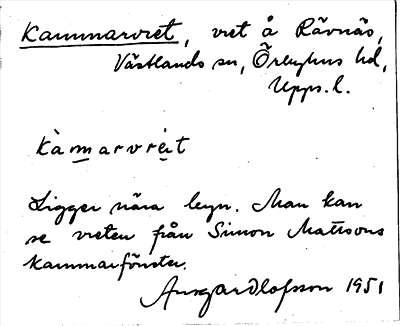 Kammarvret, vret å Rävnäs,
Västlands sn, Örbyhus hd,
Upps. l.
kàmarvrèt
Ligger nära byn. Man kan
se vreten från Simon Matsons
kammarfönster.
1951